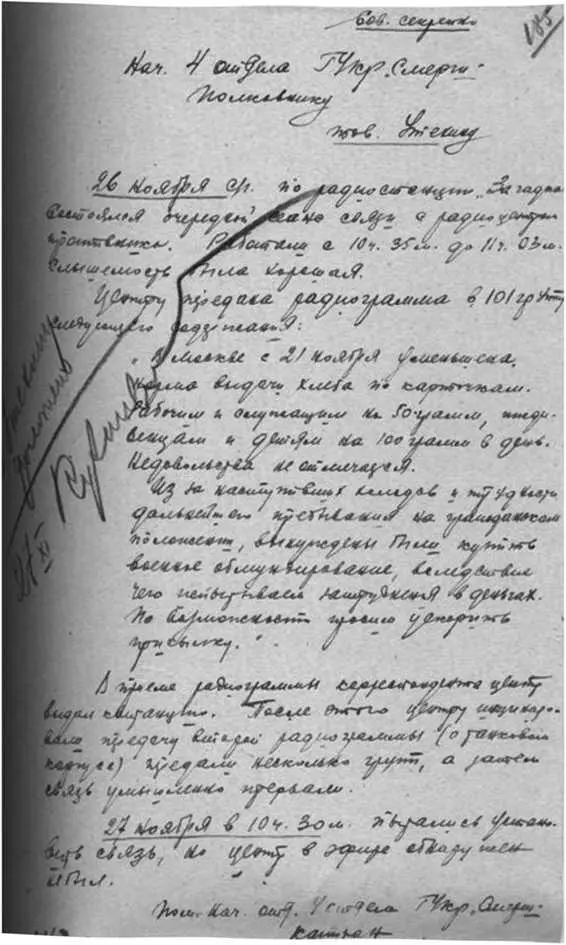 Сов. секретно
185
Нач. 4 отдела ГУКР „Смерш"
Полковнику
тов. Утехину
26 ноября с/г. по радиостанции „Загадка"
состоялся очередной сеанс связи с радиоцентром
противника. Работали с 10ч. 35м. до 11ч. 03м.
Слышимость была хорошая.
Центру передана радиограмма в 101 группу
следующего содержания:
„В Москве с 21 ноября уменьшена
норма выдачи хлеба по карточкам.
Рабочим и служащим на 50 грамм, ижди-
венцам и детям на 100 грамм в день.
Недовольства не отмечается.
Из за наступивших холодов и трудности
дальнейшего пребывания на гражданском
положении, вынуждены были купить
военное обмундирование, вследствие
чего испытываем затруднения в деньгах.
По возможности просим ускорить
присылку."
В приеме радиограммы корреспондента центр
выдал квитанцию. После этого центру инсциниро-
вали передачу второй радиограммы (о танковом
корпусе) передали несколько групп, а затем
связь умышленно прервали.
27 ноября в 10ч. 30м. пытались устано-
вить связь, но центр в эфире обнаружен
не был.
Пом. Нач. отд. 4 отдела ГУКР „Смерш"
капитан
Доложено
27/XI